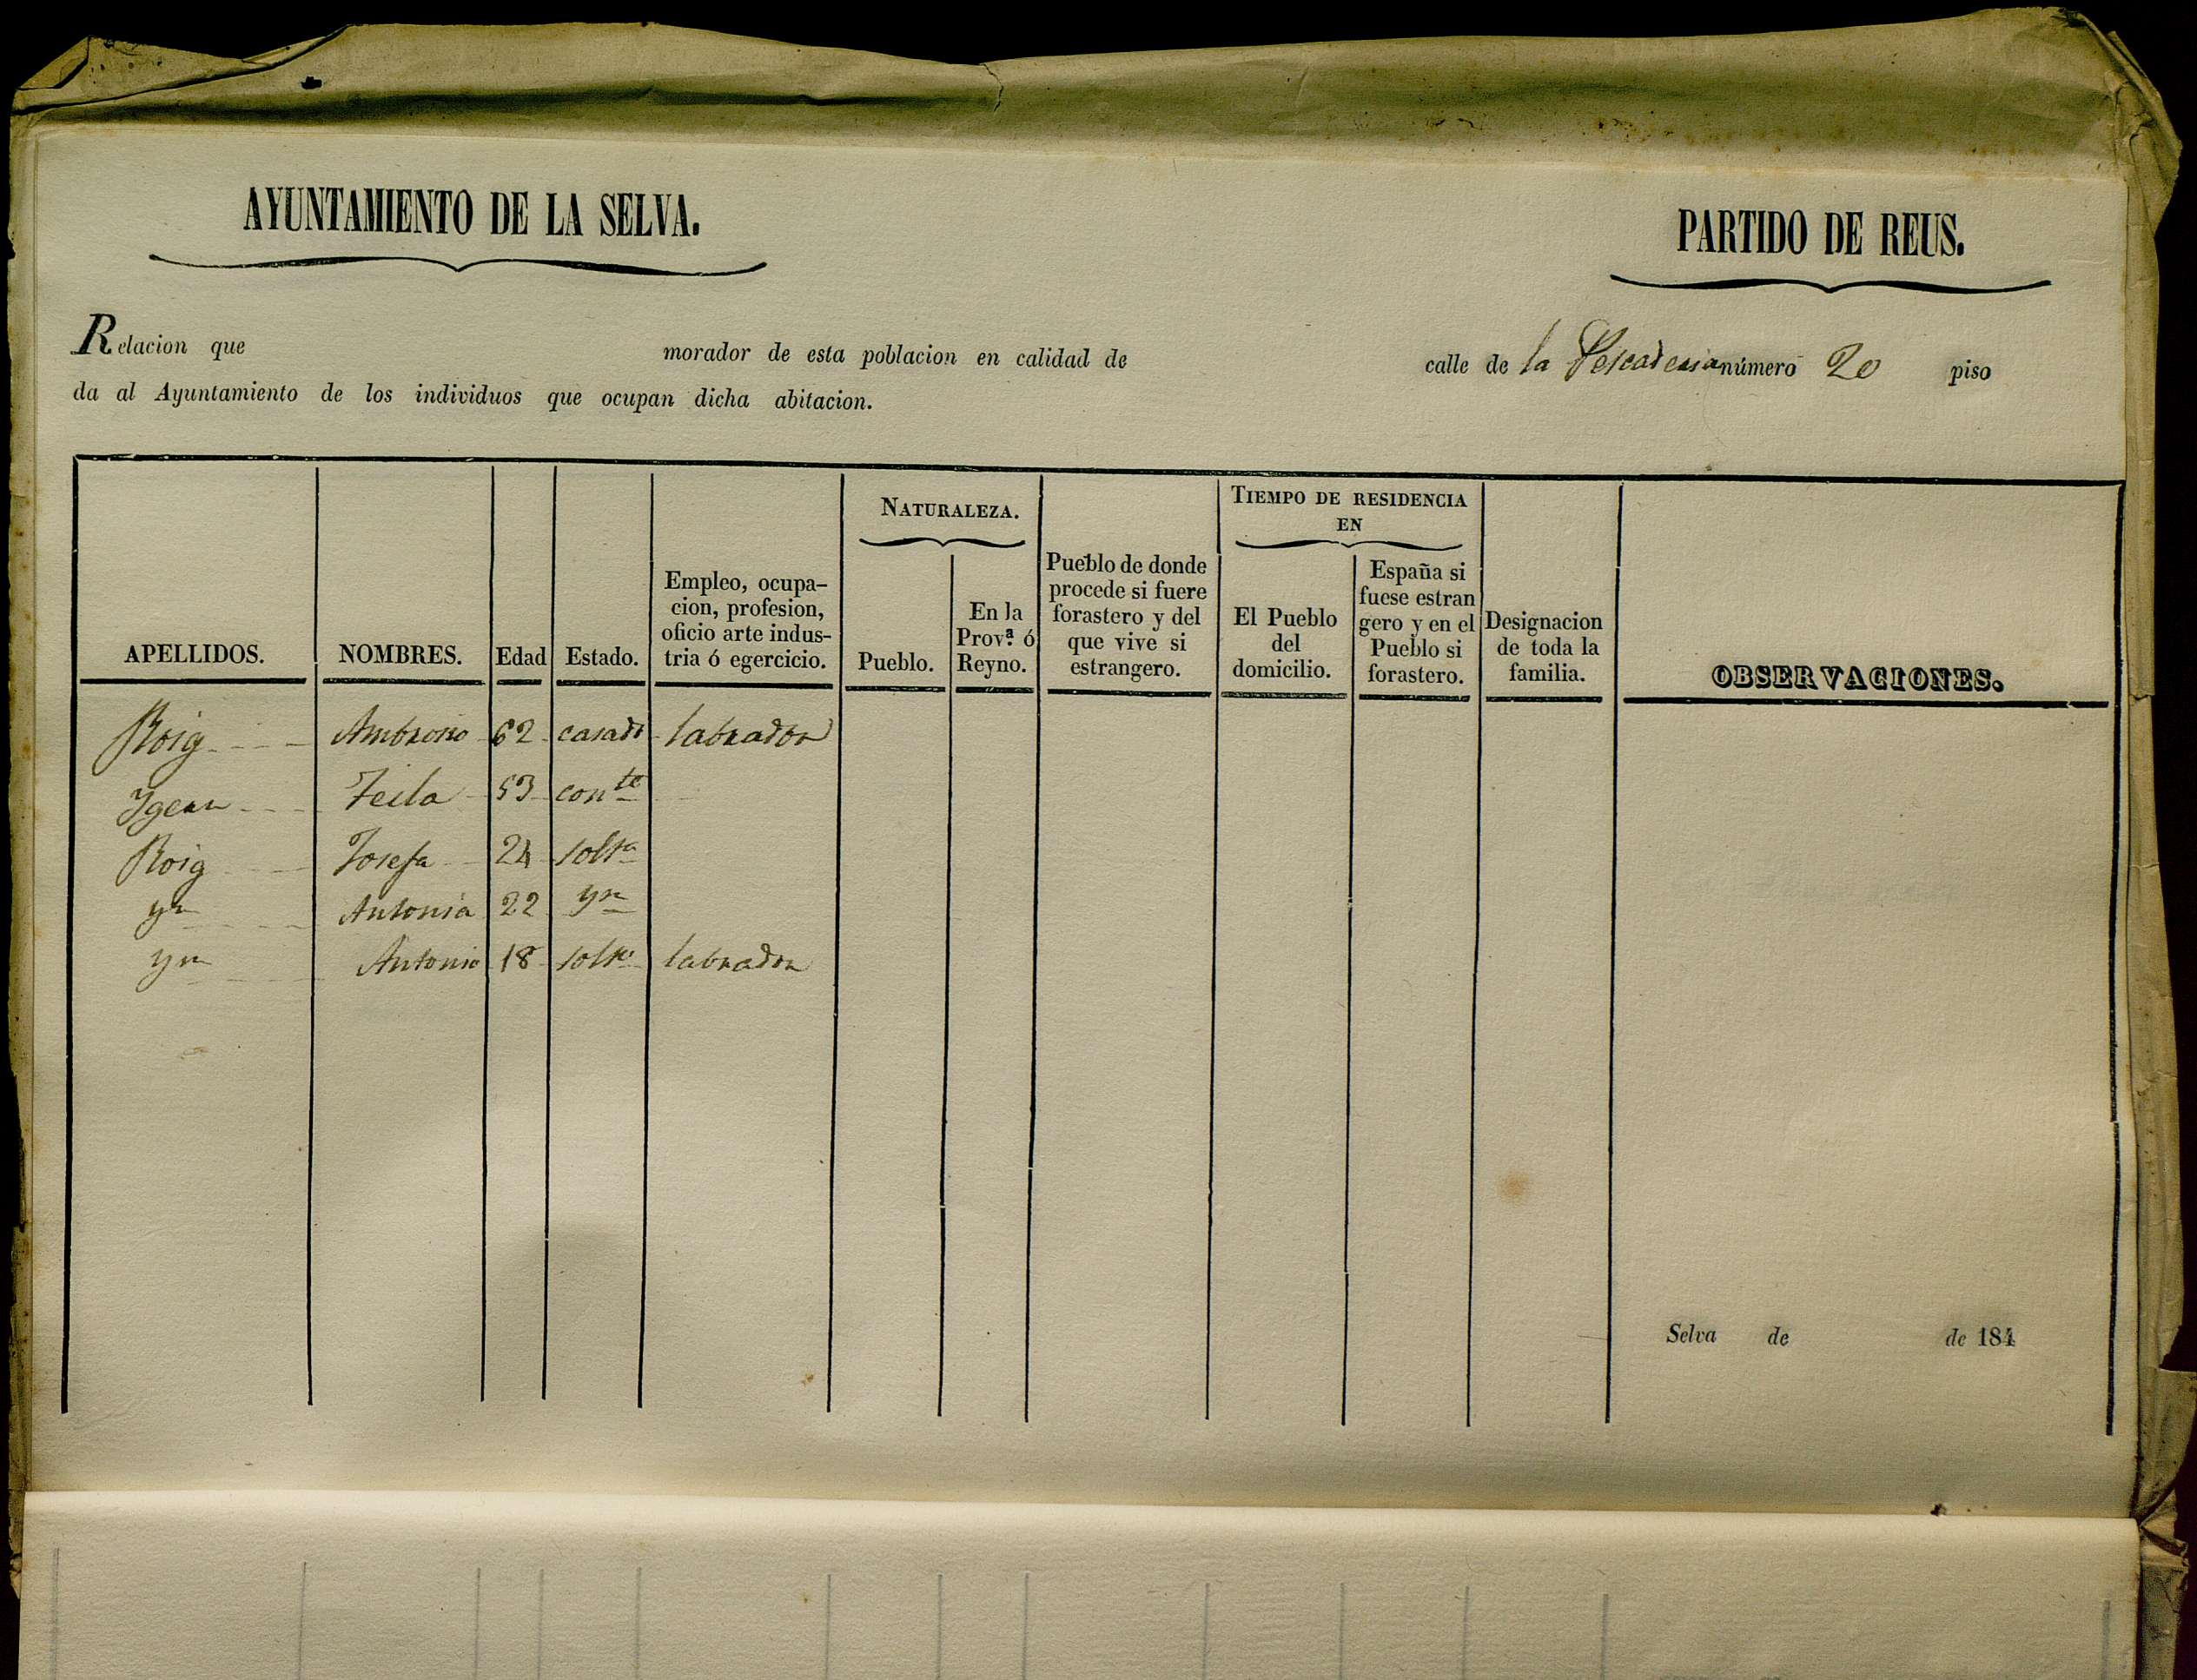 AYUNTAMIENTO DE LA SELVA.
PARTIDO DE REUS.
Relacion que morador de esta poblacion en calidad de calle de la Pescaderia número 20 piso
da al Ayuntamiento de los individuos que ocupan dicha abitacion.
APELLIDOS.
NOMBRES.
Edad
Estado.
Empleo, ocupa-
cion, profesion,
oficio arte indus-
tria ó egercicio.
NATURALEZA.
Pueblo.
En la
Prov.ª ó
Reyno.
Pueblo de donde
procede si fuere
forastero y del
que vive si
estrangero.
TIEMPO DE RESIDENCIA
EN
El Pueblo
del
domicilio.
España si
fuese estran
gero y en el
Pueblo si
forastero.
Designacion
de toda la
familia.
OBSERVACIONES.
Roig Ambrosio 62 casado labrador
53 con te
Roig Josefa 24 solt a
yn Antonia 22 yn
yn Antonio 18 solt o labrador
Selva de de 184